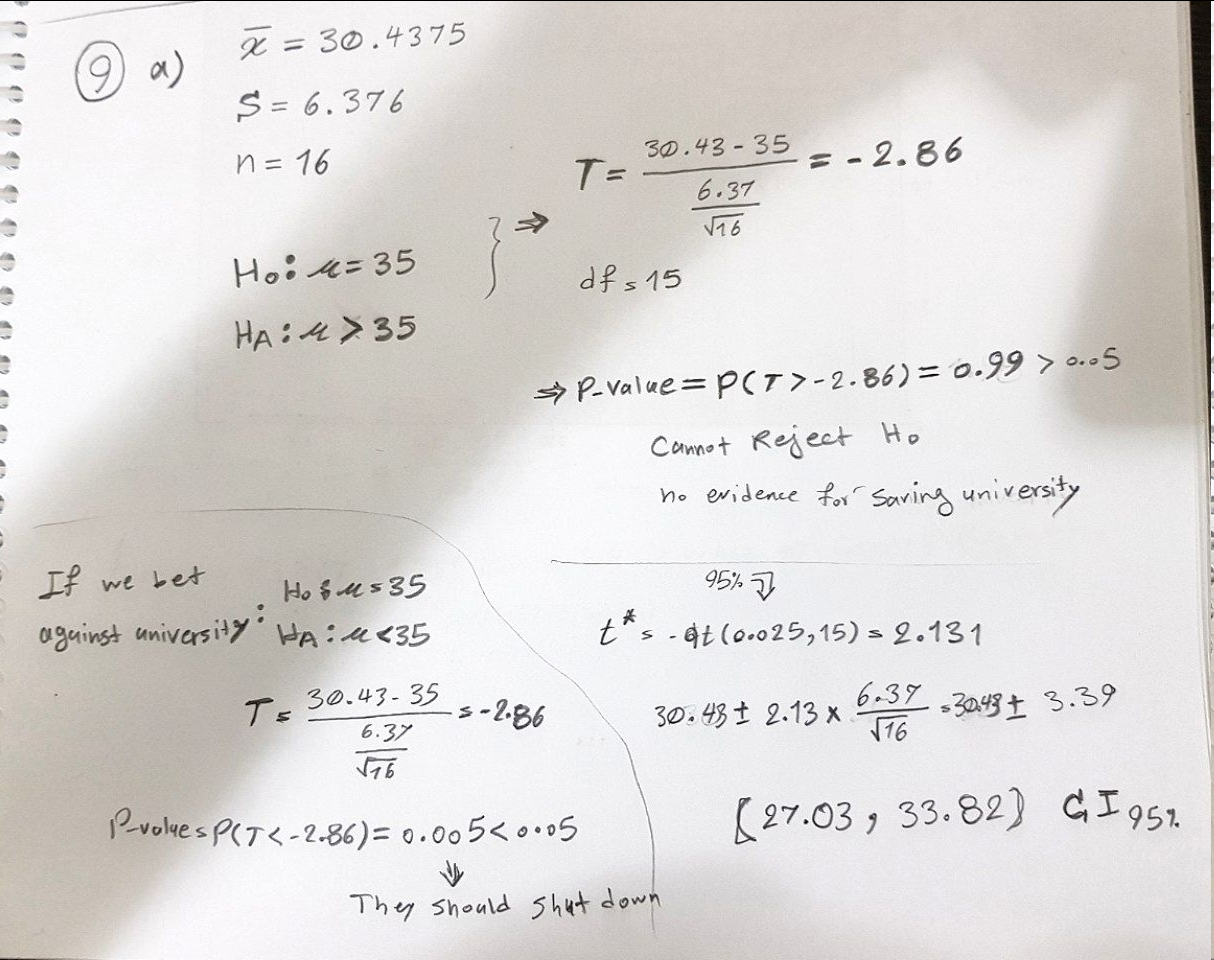 9 a) x̄ = 30.4375
S = 6.376
n = 16
H₀: μ = 35
H_A: μ > 35
} ⇒ T = (30.43 - 35) / (6.37 / √16) = -2.86
df = 15
⇒ P-value = P(T > -2.86) = 0.99 > 0.05
Cannot Reject H₀
no evidence for saving university
If we bet
against university:
H₀: μ = 35
H_A: μ < 35
T = (30.43 - 35) / (6.37 / √16) = -2.86
P-value = P(T < -2.86) = 0.005 < 0.05
⇓
They should shut down
95% ⇓
t* = -qt(0.025, 15) = 2.131
30.43 ± 2.13 × 6.37 / √16 = 30.43 ± 3.39
[27.03, 33.82] CI 95%